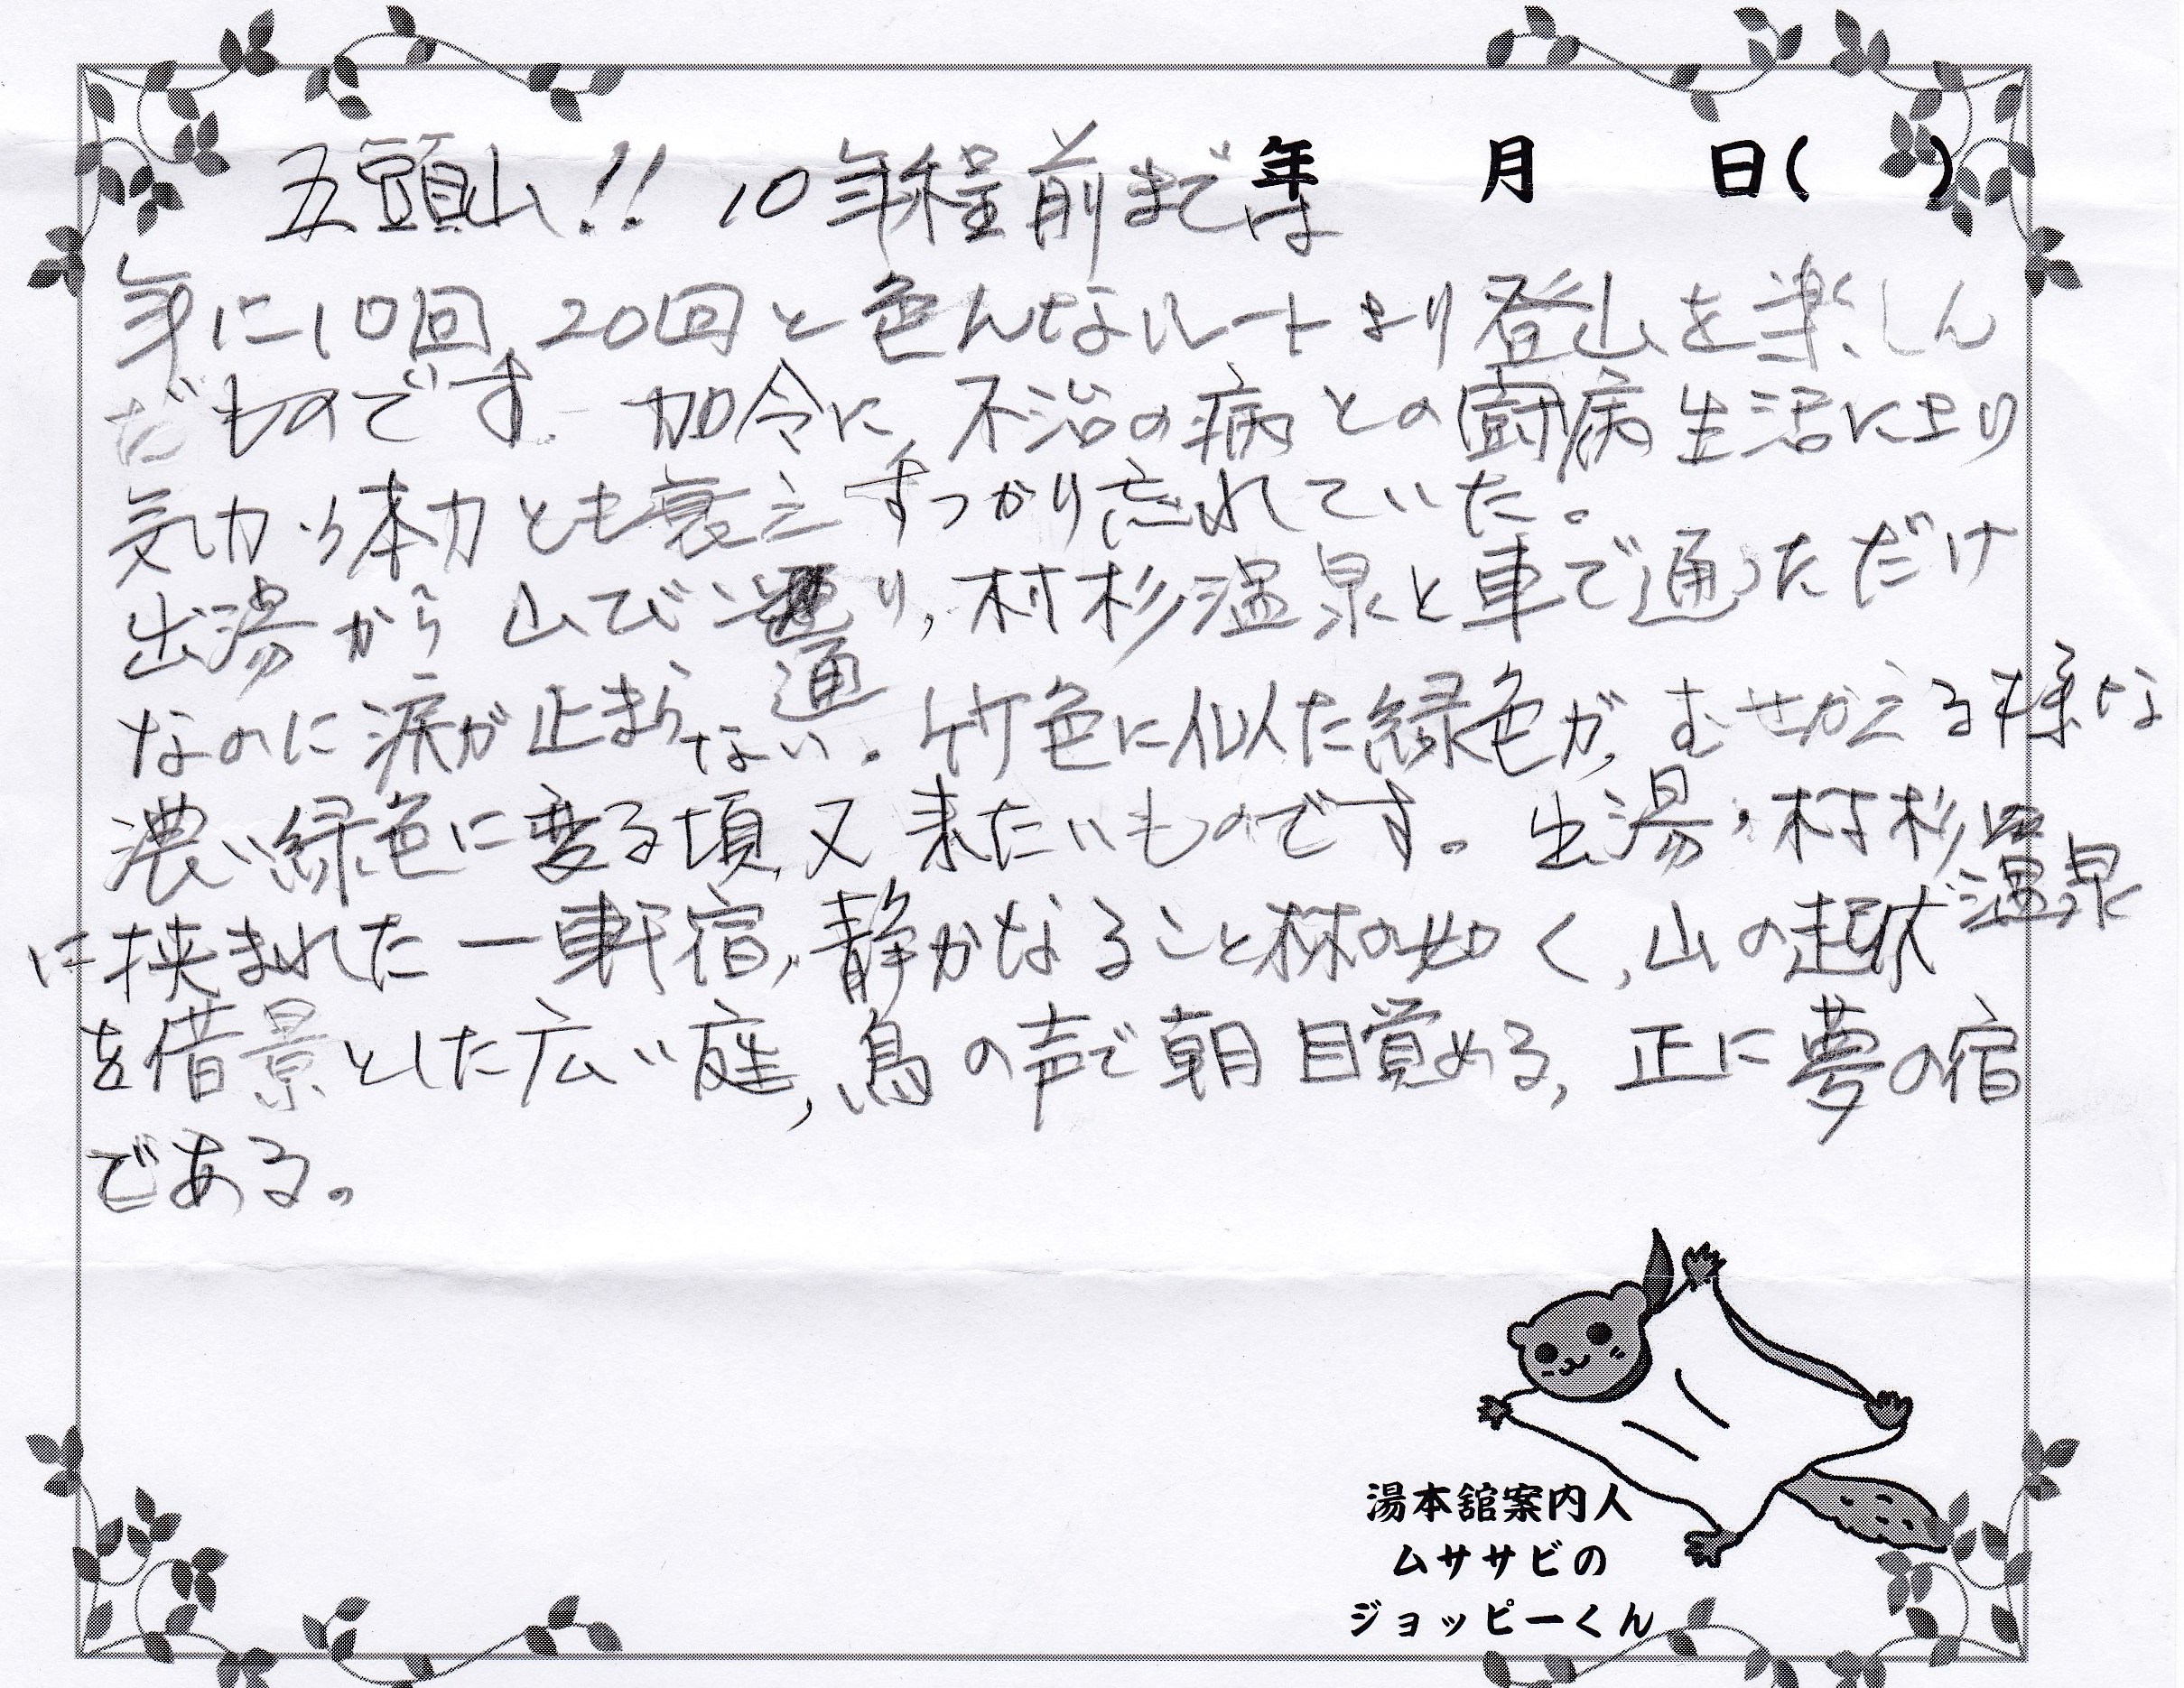 年 月 日( )
五頭山!! 10年程前までは
年に10回、20回と色んなルートより登山を楽しん
だものです。加令に、不治の病との闘病生活により
気力、体力とも衰えすっかり忘れていた。
出湯から山てび通り、村杉温泉と車で通っただけ
なのに涙が止まらない。竹色に似た緑色が、むせかえる様な
濃い緑色に変る頃、又来たいものです。出湯・村杉温泉
に挟まれた一軒宿、静かなること林の如く、山の起伏
を借景とした広い庭、鳥の声で朝目覚める、正に夢の宿
である。
湯本舘案内人
ムササビの
ジョッピーくん